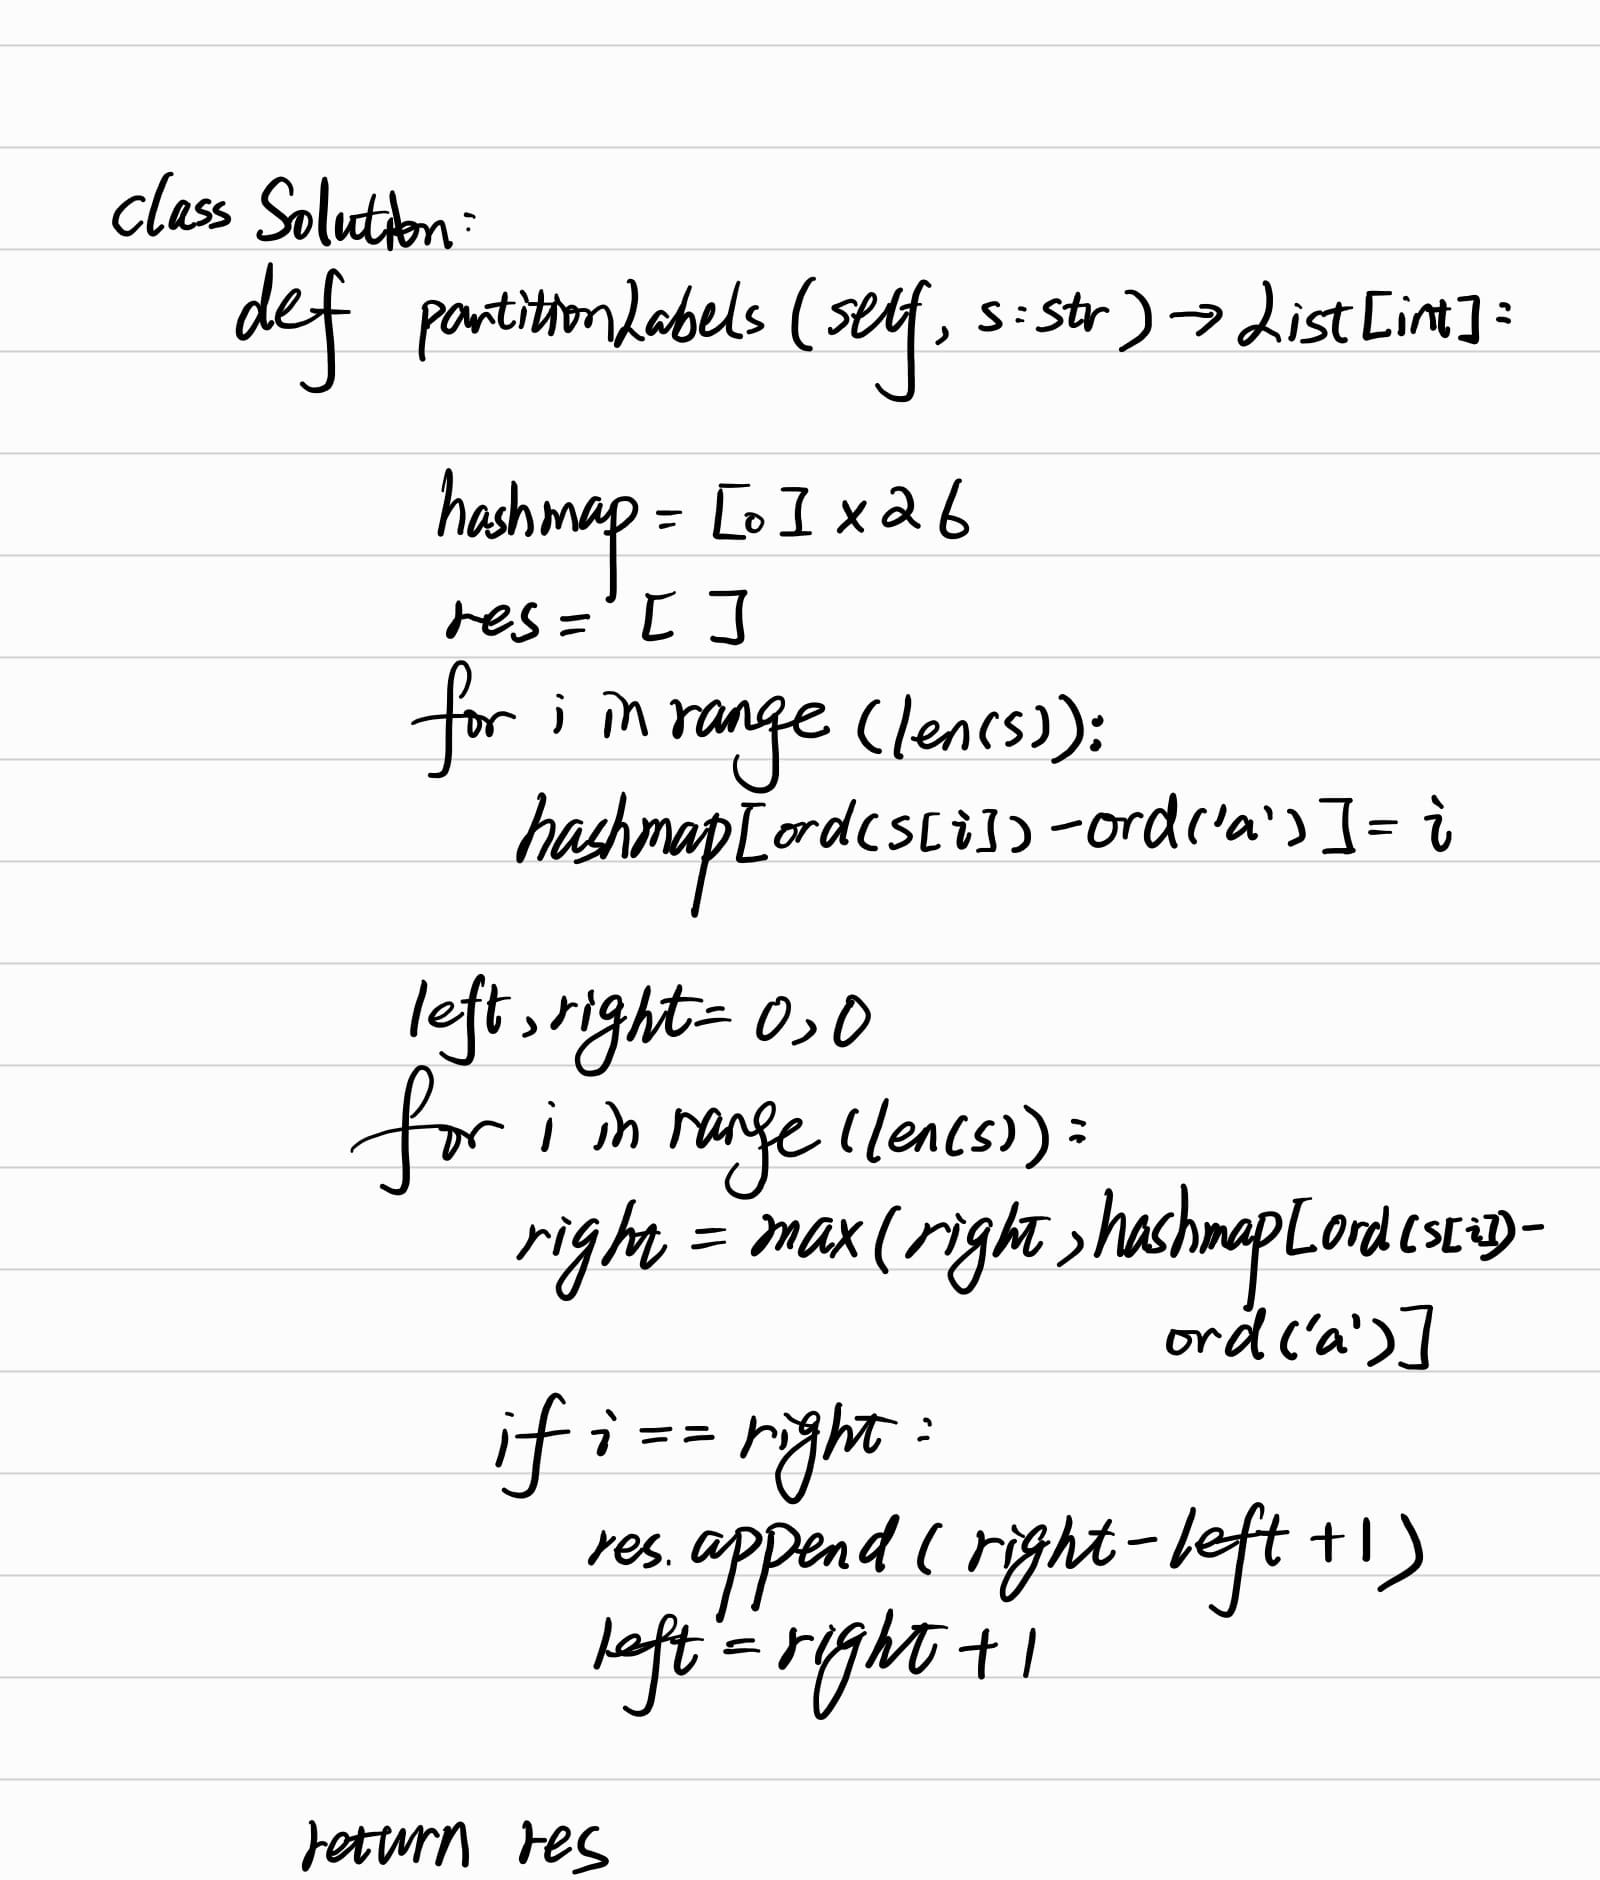 class Solution:
def partitionLabels (self, s:str) → List[int]:
hashmap = [0] × 26
res = [ ]
for i in range (len(s)):
hashmap[ord(s[i]) - ord('a')] = i
left, right = 0, 0
for i in range (len(s)):
right = max(right, hashmap[ord(s[i]) -
ord('a')]
if i == right:
res.append(right - left + 1)
left = right + 1
return res